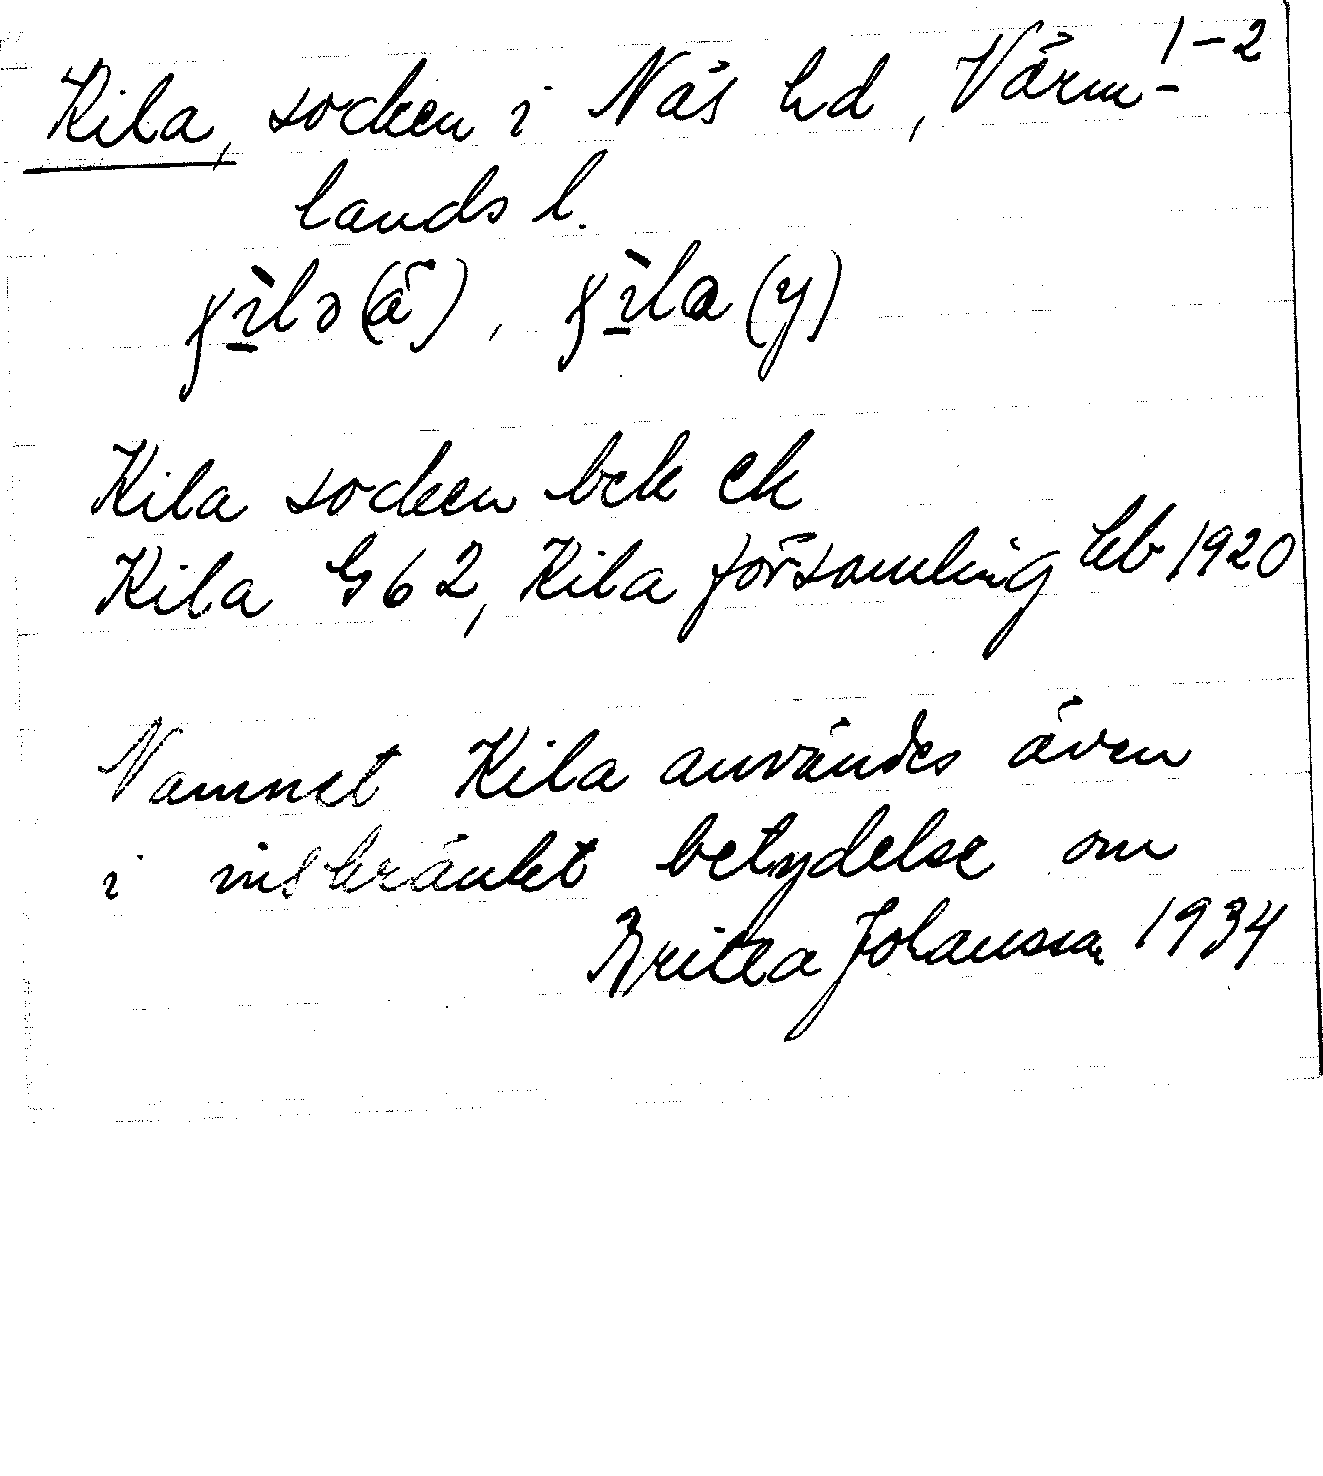 1-2
Kila, socken i Näs hd, Värm-
lands l.
(ä), (y)
Kila socken bek ek
Kila G 62, Kila församling hb 1920
Namnet Kila användes även
i inskränkt betydelse om
Britta Johansson 1934